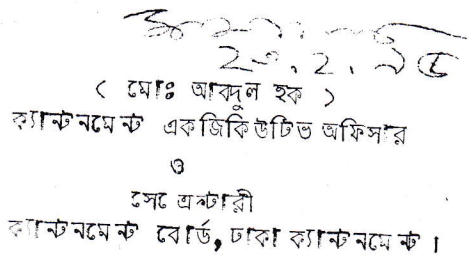 ( মোঃ আবদুল হক )
ক্যান্টনমেন্ট একজিকিউটিভ অফিসার
ও
সেক্রেটারী
ক্যান্টনমেন্ট বোর্ড, ঢাকা ক্যান্টনমেন্ট।